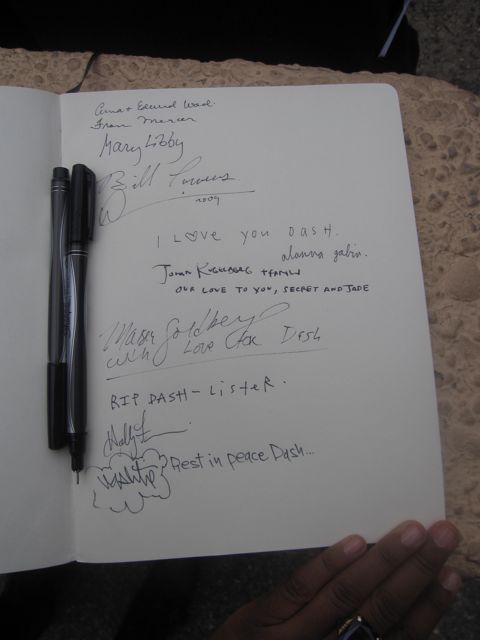 Anna + Edmund Ward
Fran Mercer
Mary Libby
Bill Powers
2009
I L♡ve you DASH.
alanna gabin.
Johan Kugelberg + FAMILY
OUR LOVE TO YOU, SECRET AND JADE
Goldberg
with Love for Dash
RIP DASH - Lister.
Holly
Rest in peace Dash...